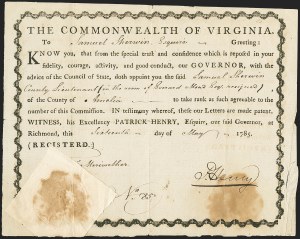 THE COMMONWEALTH OF VIRGINIA.
To Samuel Sherwin, Esquire Greeting:
KNOW you, that from the special trust and confidence which is reposed in your
fidelity, courage, activity, and good conduct, our GOVERNOR, with
the advice of the Council of State, doth appoint you the said Samuel Sherwin
County Lieutenant (in the room of
of the County of Amelia to take rank as such agreeable to the
number of this Commission. IN testimony whereof, these our Letters are made patent.
WITNESS, his Excellency PATRICK HENRY, Esquire, our said Governor, at
Richmond, this Sixteenth day of May 1785.
(REGISTERED.)
Meriwether
P. Henry
No. 25